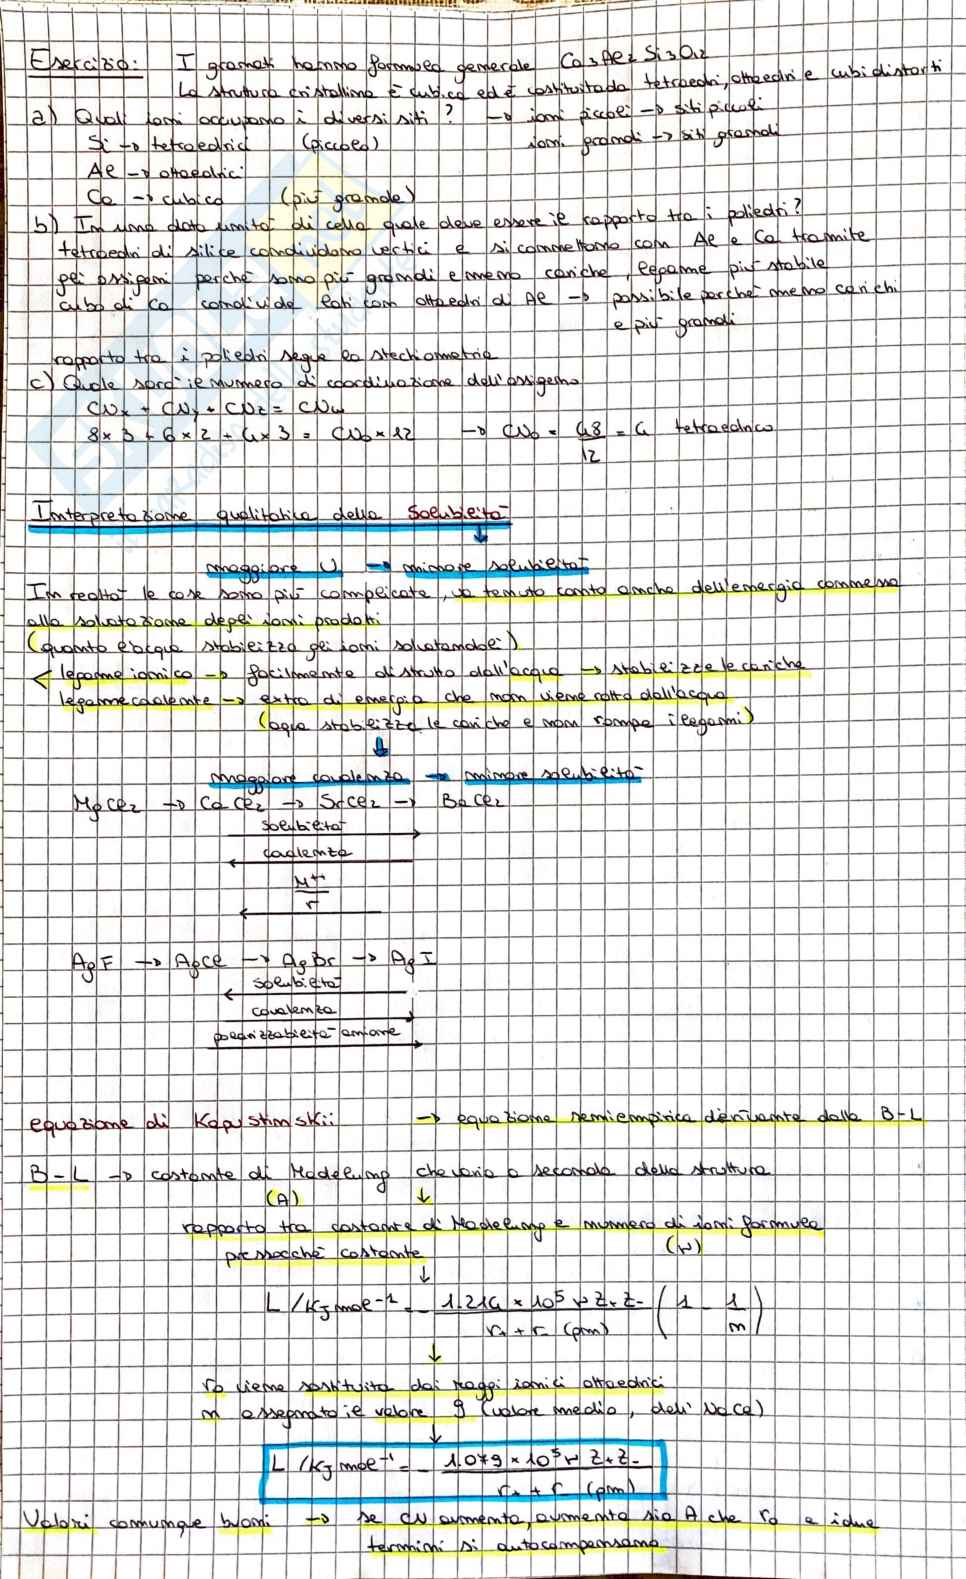 Esercizio: I granati hanno formula generale Ca3Al2Si3O12
La struttura cristallina è cubica ed è costituita da tetraedri, ottaedri e cubi distorti
a) Quali ioni occupano i diversi siti? → ioni piccoli → siti piccoli
Si → tetraedrici (piccolo) ioni grandi → siti grandi
Al → ottaedrici
Ca → cubico (più grande)
b) In una data unità di cella quale deve essere il rapporto tra i poliedri?
tetraedri di silice condividono vertici e si connettono con Al e Ca tramite
gli ossigeni perché sono più grandi e meno cariche, legame più stabile
cubo di Ca condivide lati con ottaedri di Al → possibile perché meno carichi
e più grandi
rapporto tra i poliedri segue la stechiometria
c) Quale sarà il numero di coordinazione dell'ossigeno
CNx + CNy + CNz = CNw
8×3 + 6×2 + 4×3 = CNo × 12 → CNo = 48/12 = 4 tetraedrico
Interpretazione qualitativa della Solubilità
↓
maggiore U → minore solubilità
In realtà le cose sono più complicate, va tenuto conto anche dell'energia connessa
alla solvatazione degli ioni prodotti
(quanto l'acqua stabilizza gli ioni solvatandoli)
legame ionico → facilmente distrutto dall'acqua → stabilizza le cariche
legame covalente → extra di energia che non viene rotta dall'acqua
(aqua stabilizza le cariche e non rompe i legami)
↓
maggiore covalenza → minore solubilità
MgCl2 → CaCl2 → SrCl2 → BaCl2
solubilità →
← covalenza
← M++/r
AgF → AgCl → AgBr → AgI
← solubilità
covalenza →
polarizzabilità anione →
equazione di Kapustinskii → equazione semiempirica derivante dalla B-L
B-L → costante di Madelung che varia a seconda della struttura
(A) ↓
rapporto tra costante di Madelung e numero di ioni formula
pressocché costante (ν)
↓
L/kJ mol-1 = - 1.214 × 10^5 ν z+ z- / r+ + r- (pm) (1 - 1/n)
↓
r0 viene sostituita dai raggi ionici ottaedrici
n assegnato il valore 9 (valore medio, dell'NaCl)
↓
L/kJ mol-1 = - 1.079 × 10^5 ν z+ z- / r+ + r- (pm)
Valori comunque buoni → se CN aumenta, aumenta sia A che r0 e i due
termini si autocompensano